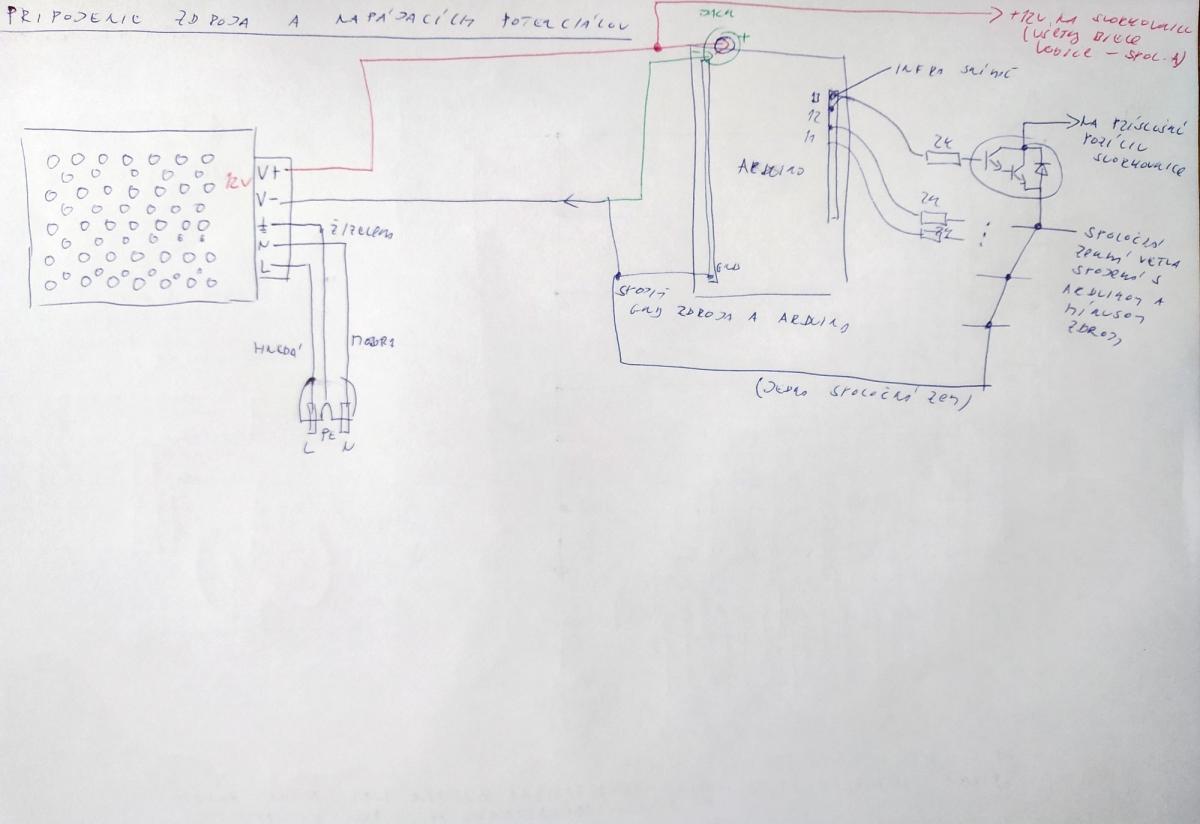 PRIPOJENIE ZDROJA A NAPÁJACÍCH POTENCIÁLOV
+12V NA SVORKOVNICU
(VŠETKY BIELE
VODIČE - SPOL. A)
JACK
+
-
INFRA SNÍMAČ
13
12
11
2K
NA PRÍSLUŠNÚ
POZÍCIU
SVORKOVNICE
ARDUINO
12V
V+
V-
N
L
Ž/ZELENÁ
2K
2K
SPOLOČNÁ
ZEMNÁ VETVA
SPOJENÁ S
ARDUINOM A
MÍNUSOM
ZDROJA
GND
SPOJIŤ
GND ZDROJA A ARDUINO
HNEDÁ
MODRÁ
(JEDNA SPOLOČNÁ ZEM)
L
PE
N